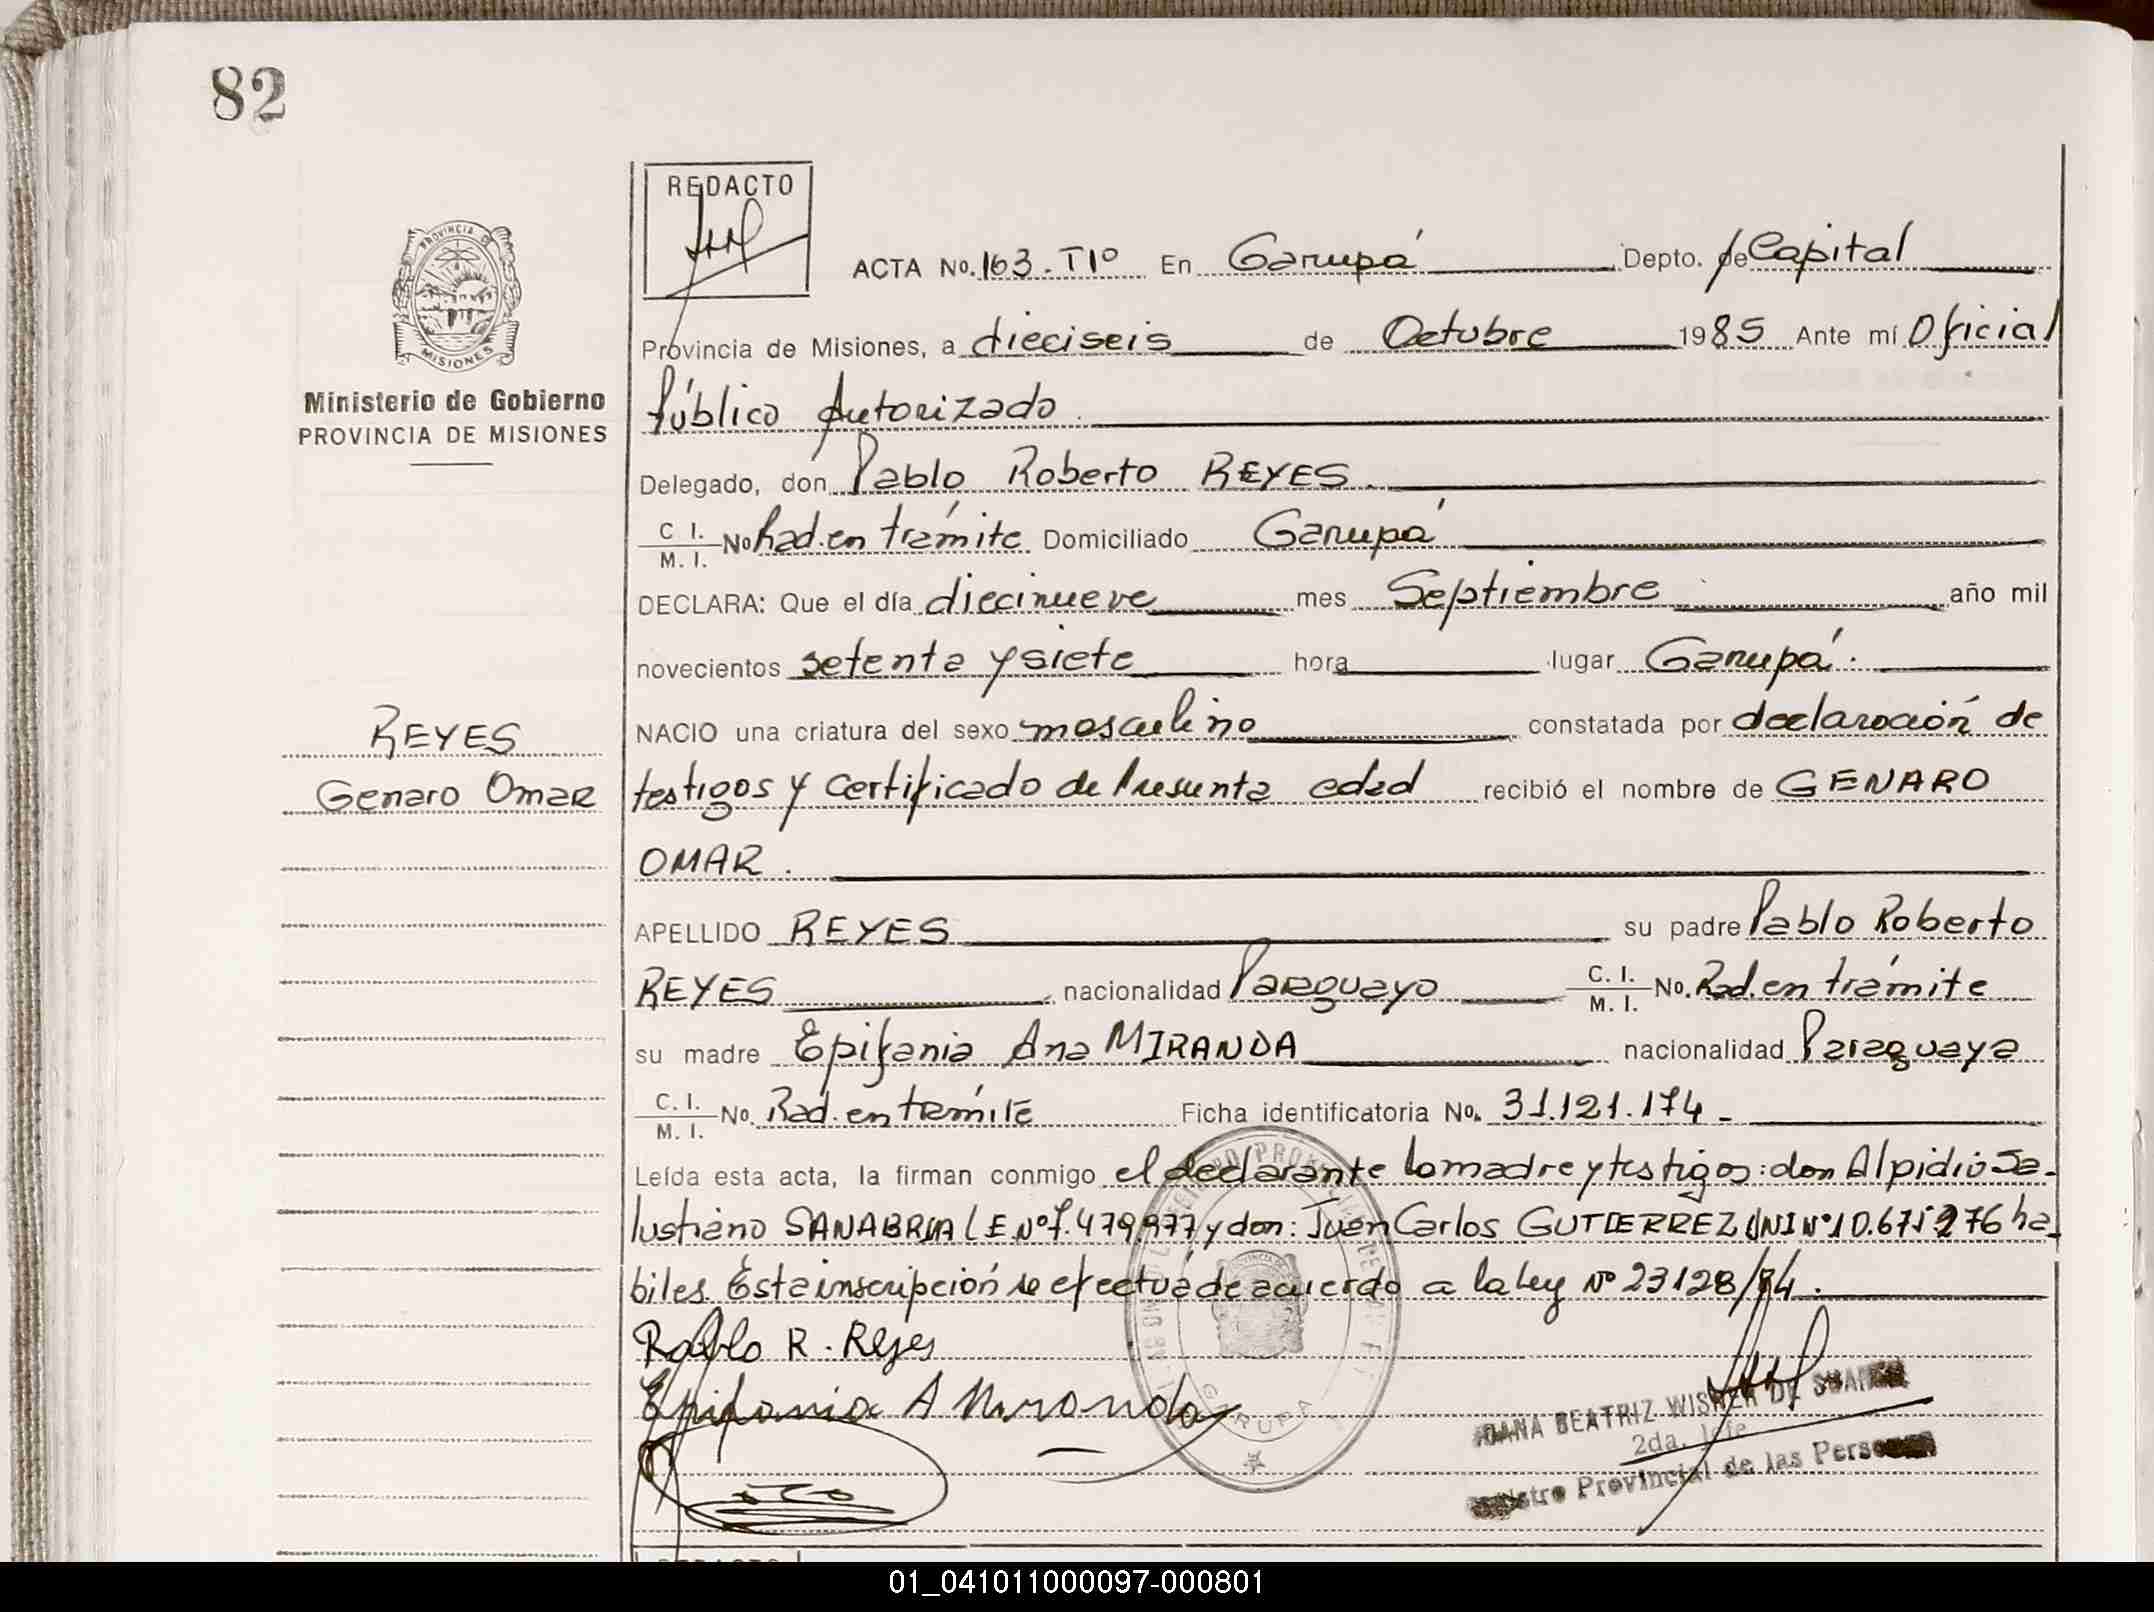 82
REDACTO
ACTA No. 163. TIº En Garupá Depto. de Capital
PROVINCIA DE
MISIONES
Provincia de Misiones, a dieciseis de Octubre 1985 Ante mí Oficial
Ministerio de Gobierno
PROVINCIA DE MISIONES
Público Autorizado.
Delegado, don Pablo Roberto REYES.
C. I. M. I. No Rad. en trámite Domiciliado Garupá
DECLARA: Que el día diecinueve mes Septiembre año mil
novecientos setenta y siete hora lugar Garupá.
REYES
Genaro Omar
NACIO una criatura del sexo masculino constatada por declaración de
testigos y Certificado de Presunta edad recibió el nombre de GENARO
OMAR.
APELLIDO REYES su padre Pablo Roberto
REYES nacionalidad Paraguayo C. I. M. I. No. Rad. en trámite
su madre Epifania Ana MIRANDA nacionalidad Paraguaya
C. I. M. I. No. Rad. en trámite Ficha identificatoria No. 31.121.174.-
Leída esta acta, la firman conmigo el declarante la madre y testigos: don Alpidio Sa-
lustiano SANABRIA L E Nº 7.479.977 y don: Juan Carlos GUTIERREZ DNI Nº 10.675 276 ha-
biles. Esta inscripción se efectua de acuerdo a la Ley Nº 23128/84.
Pablo R. Reyes
Epifania A Miranda
GARUPA
JUANA BEATRIZ WISNER DE
2da. Jefe
Registro Provincial de las Personas
REDACTO
01_041011000097-000801